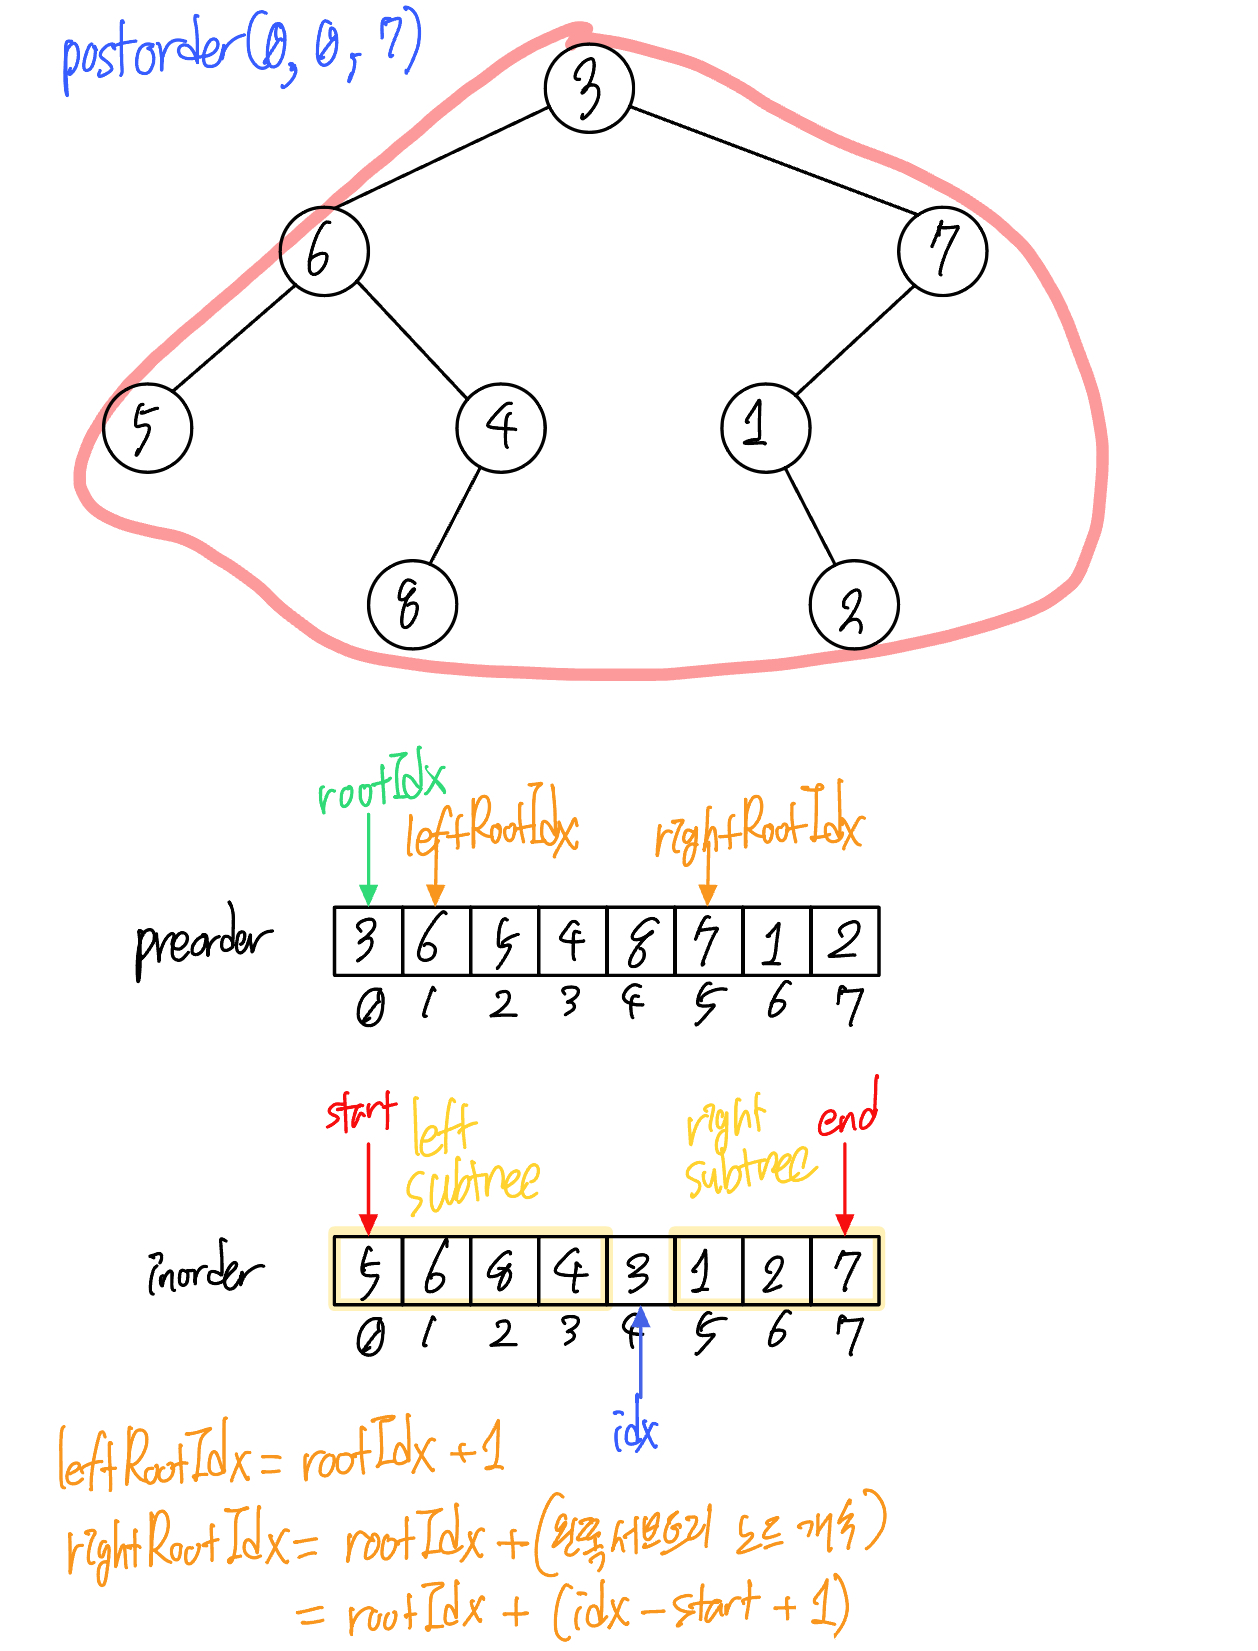 postorder(0, 0, 7)
3
6 7
5 4 1
8 2
rootIdx
leftRootIdx rightRootIdx
preorder 3 6 5 4 8 7 1 2
0 1 2 3 4 5 6 7
start left right end
subtree subtree
inorder 5 6 8 4 3 1 2 7
0 1 2 3 4 5 6 7
idx
leftRootIdx = rootIdx + 1
rightRootIdx = rootIdx + (왼쪽 서브트리 노드 개수)
= rootIdx + (idx - start + 1)